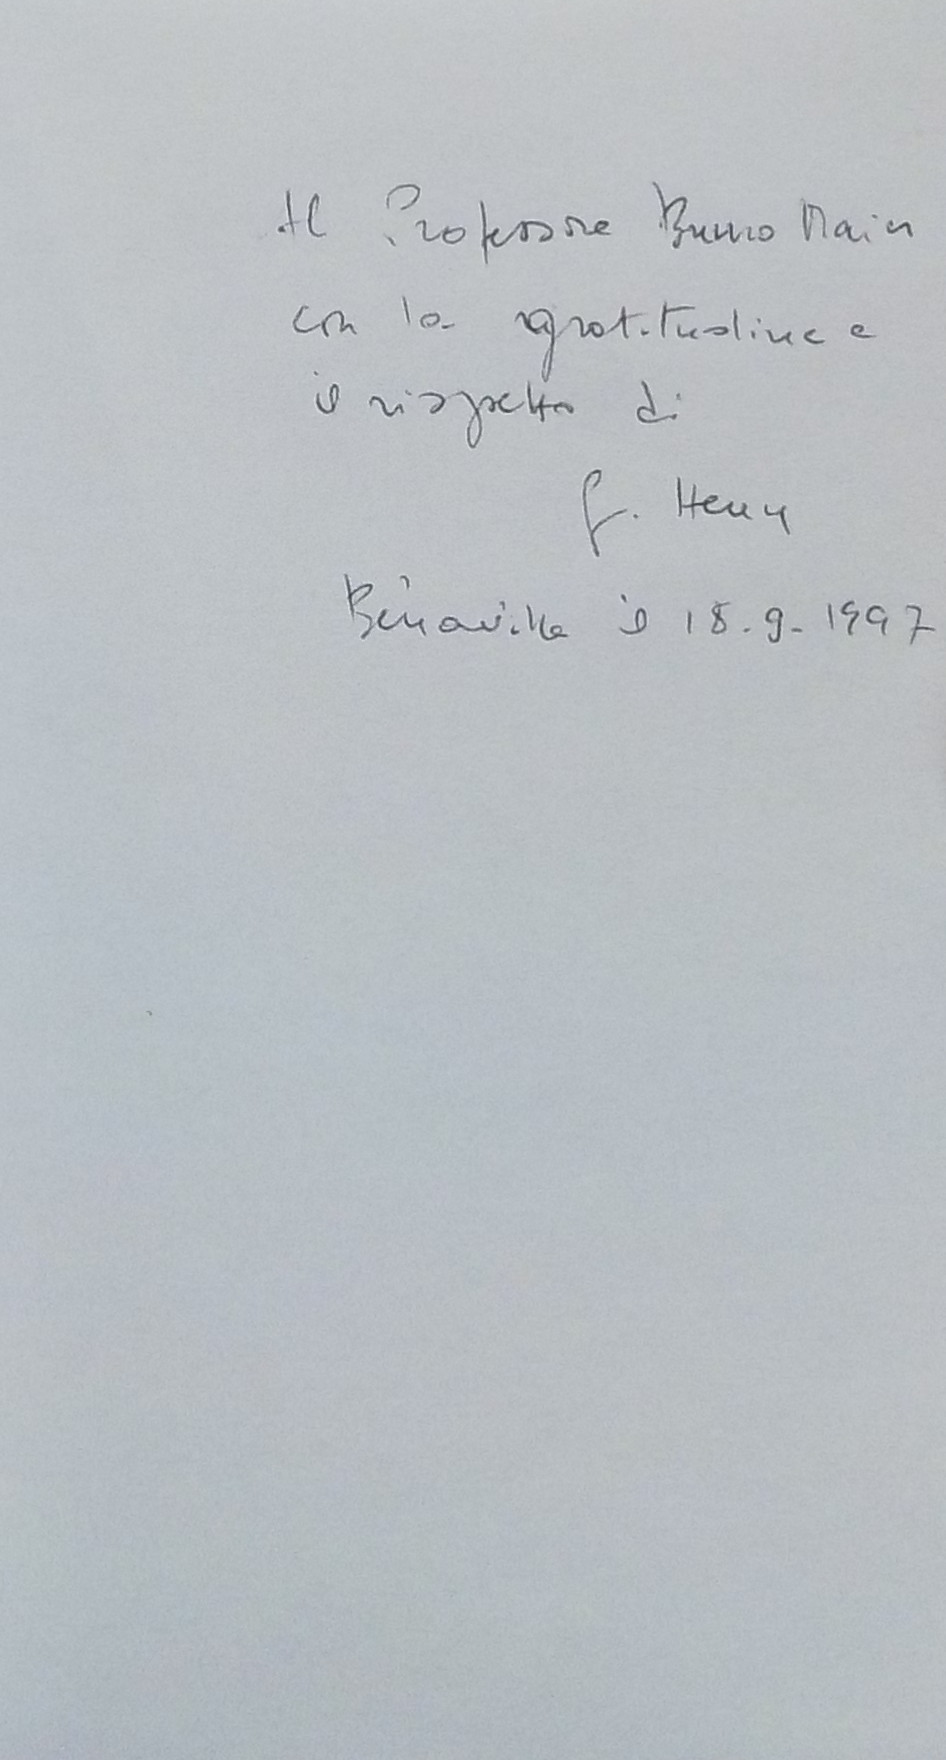 Al Professore Bruno Maier
con la gratitudine e
il rispetto di
G. Henry
Bénaville il 18.9.1997